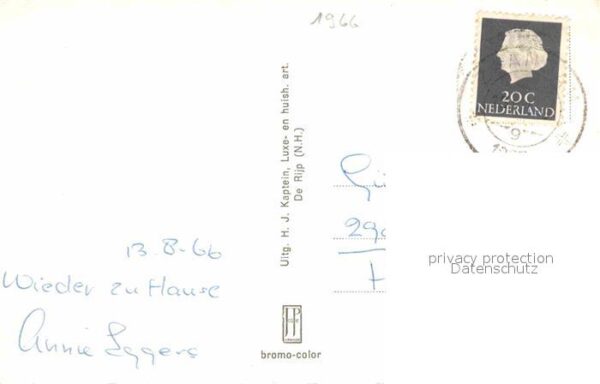 1966
20 C
NEDERLAND
9
Uitg. H. J. Kaptein, Luxe- en huish. art.
De Rijp (N.H.)
13-8-66
Wieder zu Hause
Annie Eggers
290
privacy protection
Datenschutz
bromo-color